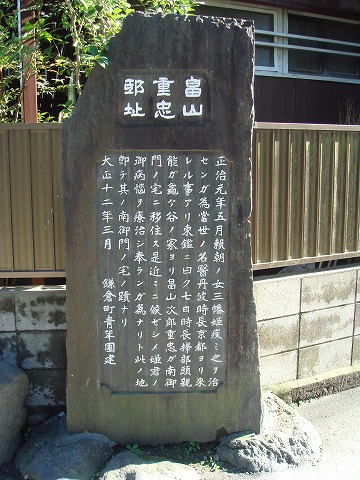 畠山
重忠
邸址
正治元年五月頼朝ノ女三幡姫疾ミ之ヲ治
センガ為當世ノ名醫丹波時長京都ヨリ來
レル事アリ東鑑ニ曰ク七日時長掃部頭親
能ガ龜ヶ谷ノ家ヨリ畠山次郎重忠ガ南御
門ノ宅ニ移住ス是近々ニ候ゼシメ姫君ノ
御病惱ヲ療治シ奉ランガ為ナリト此ノ地
即チ其ノ南御門ノ宅ノ蹟ナリ
大正十二年三月 鎌倉町青年團建